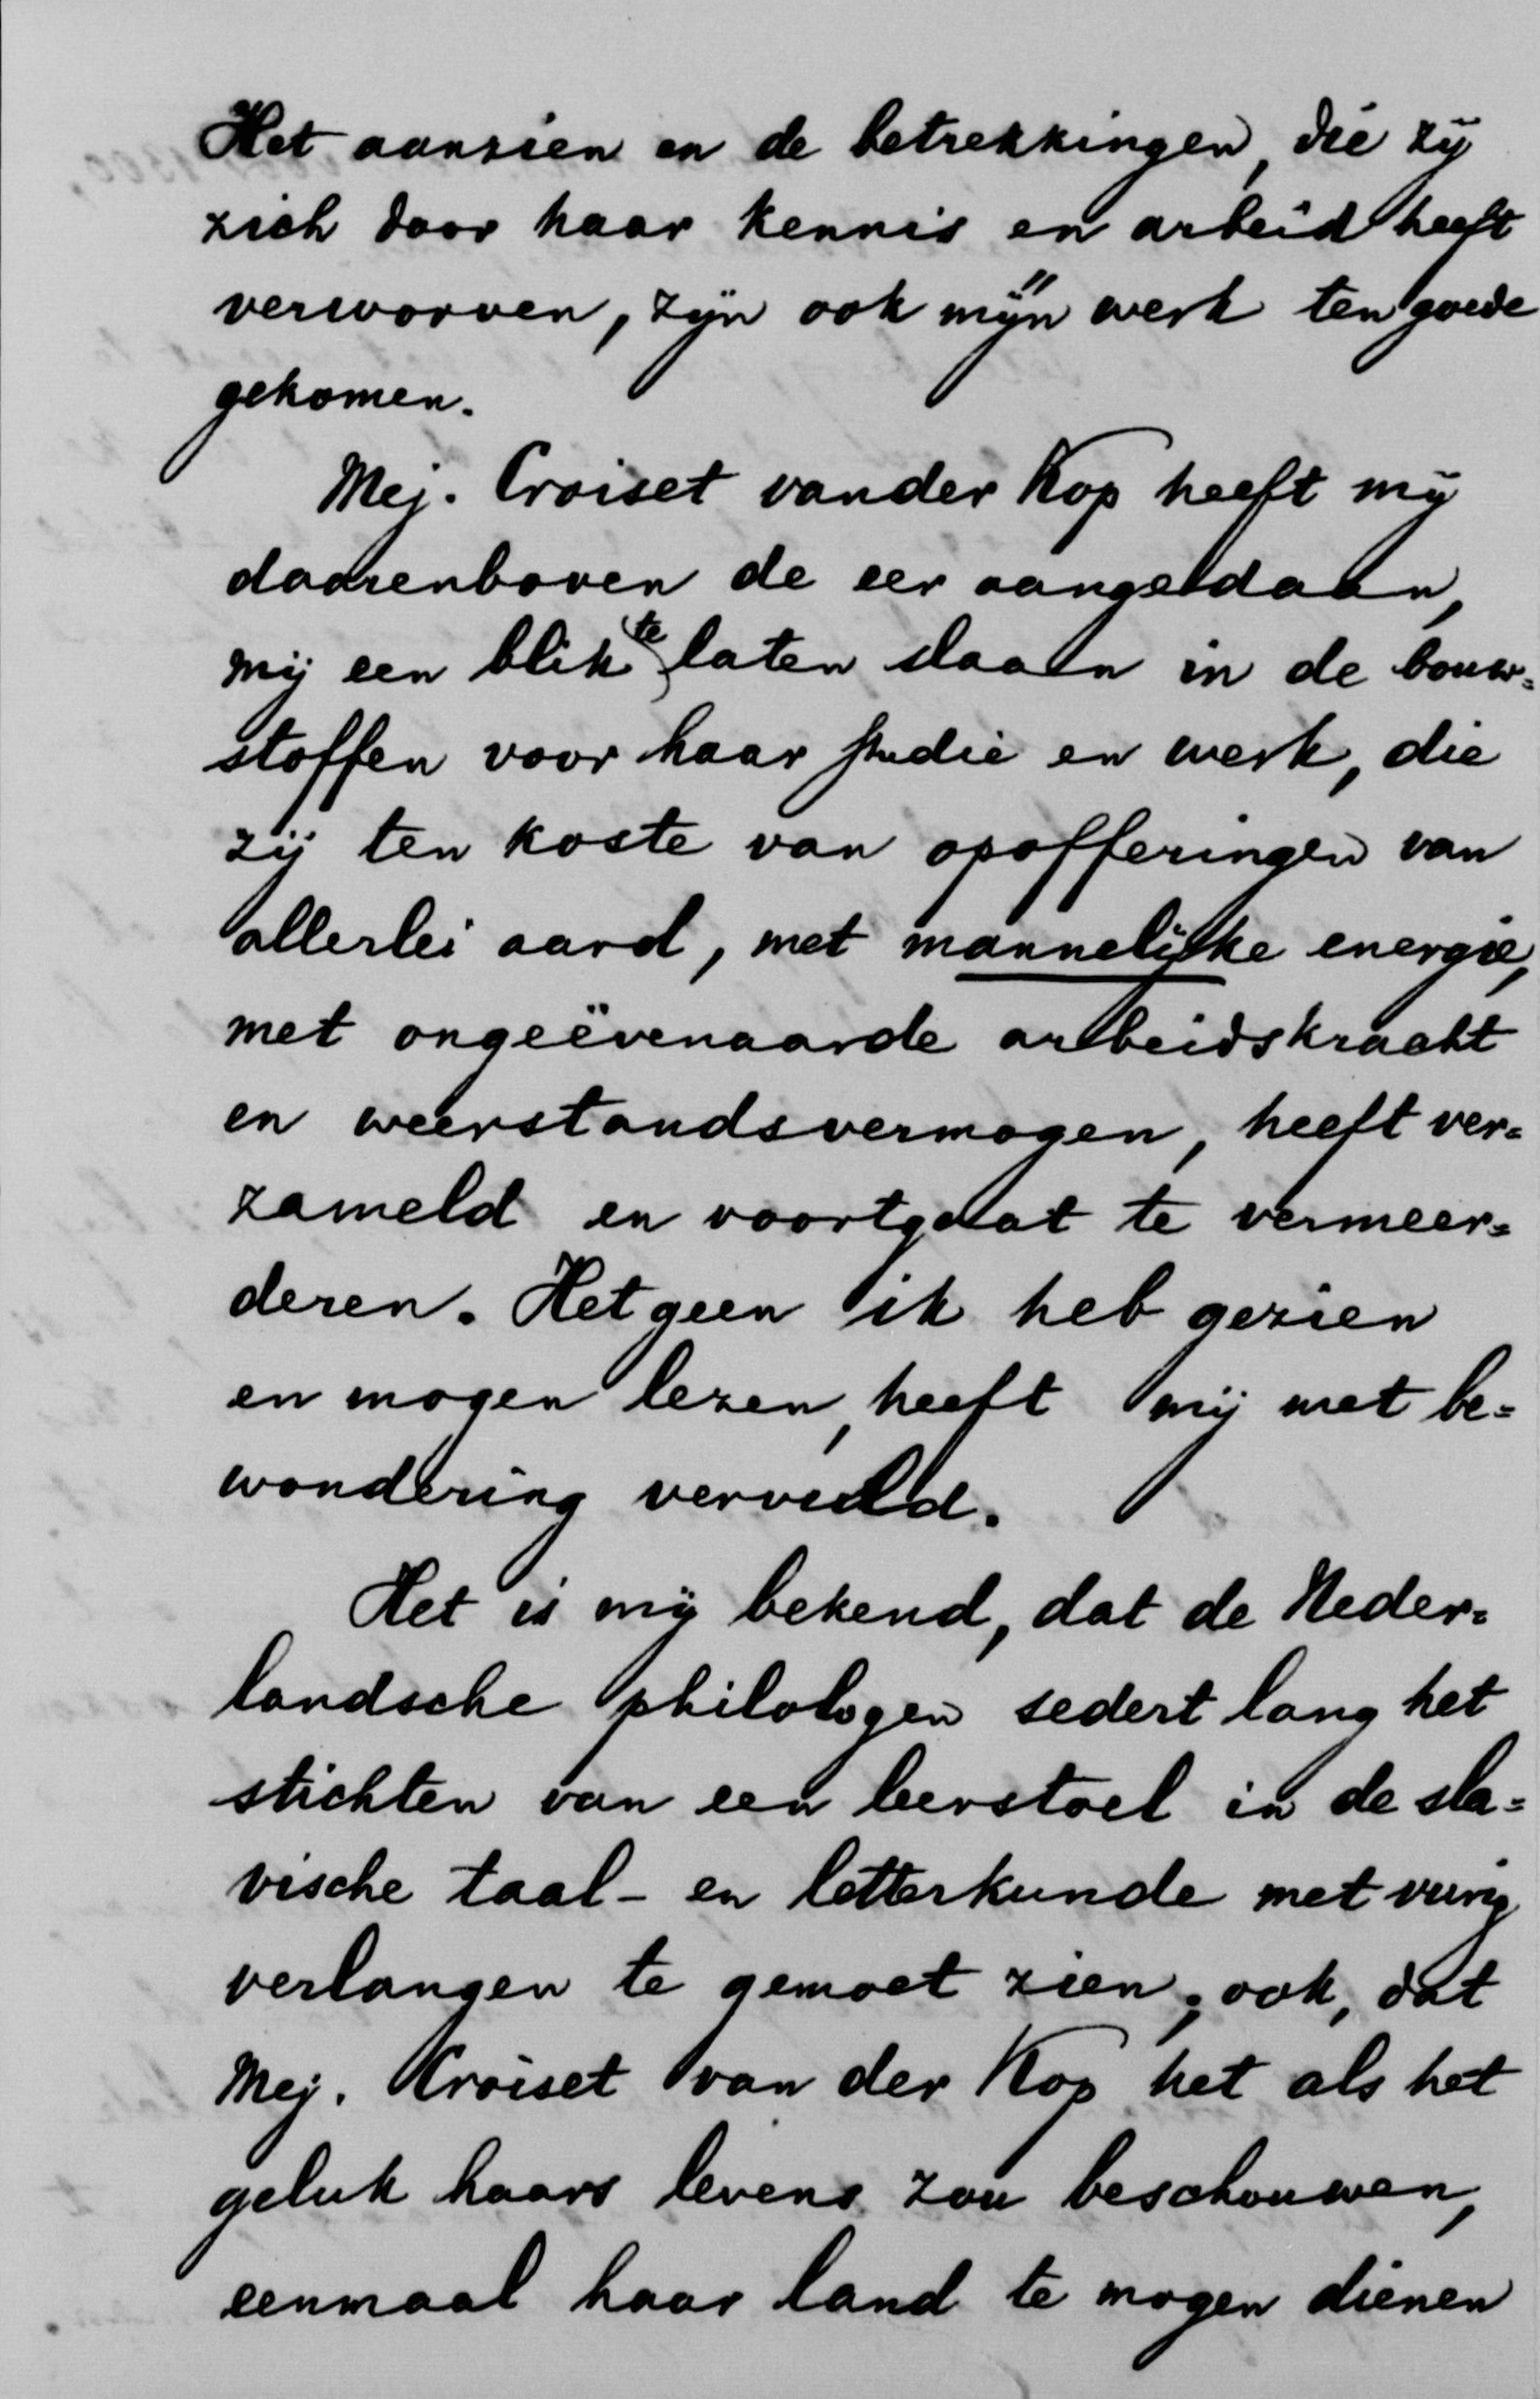 Het aanzien en de betrekkingen, die zij
zich door haar kennis en arbeid heeft
verworven, zijn ook mijn werk ten goede
gekomen.
Mej. Croiset vander Kop heeft mij
daarenboven de eer aangedaan,
mij een blik te laten slaan in de bouw=
stoffen voor haar studie en werk, die
zij ten koste van opofferingen van
allerlei aard, met mannelijke energie,
met ongeëvenaarde arbeidskracht
en weerstandsvermogen, heeft ver=
zameld en voortgaat te vermeer=
deren. Hetgeen ik heb gezien
en mogen lezen, heeft mij met be=
wondering vervuld.
Het is mij bekend, dat de Neder=
landsche philologen sedert lang het
stichten van een leerstoel in de sla=
vische taal- en letterkunde met vurig
verlangen te gemoet zien; ook, dat
Mej. Croiset van der Kop het als het
geluk haars levens zou beschouwen,
eenmaal haar land te mogen dienen